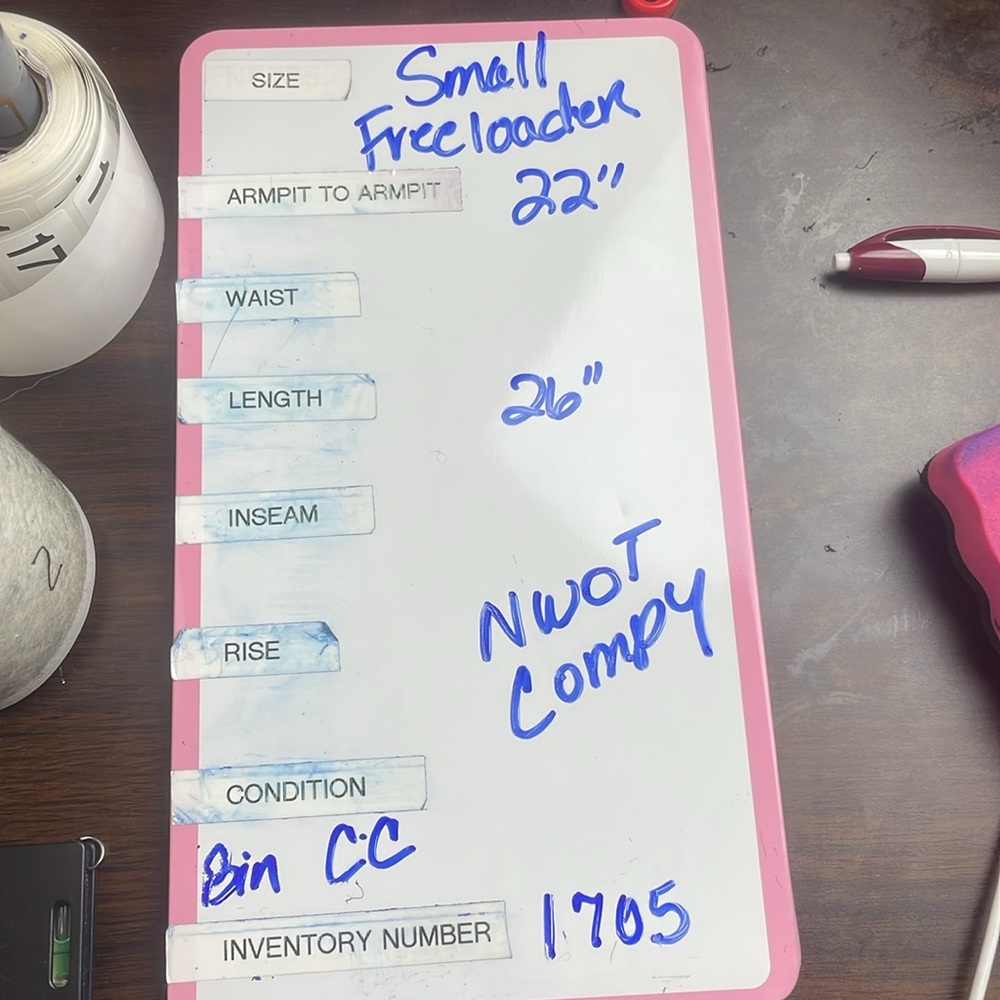 SIZE Small
Freeloader
ARMPIT TO ARMPIT 22"
WAIST
LENGTH 26"
INSEAM
NWOT
RISE
Compy
CONDITION
Bin CC
INVENTORY NUMBER 1705
17
2